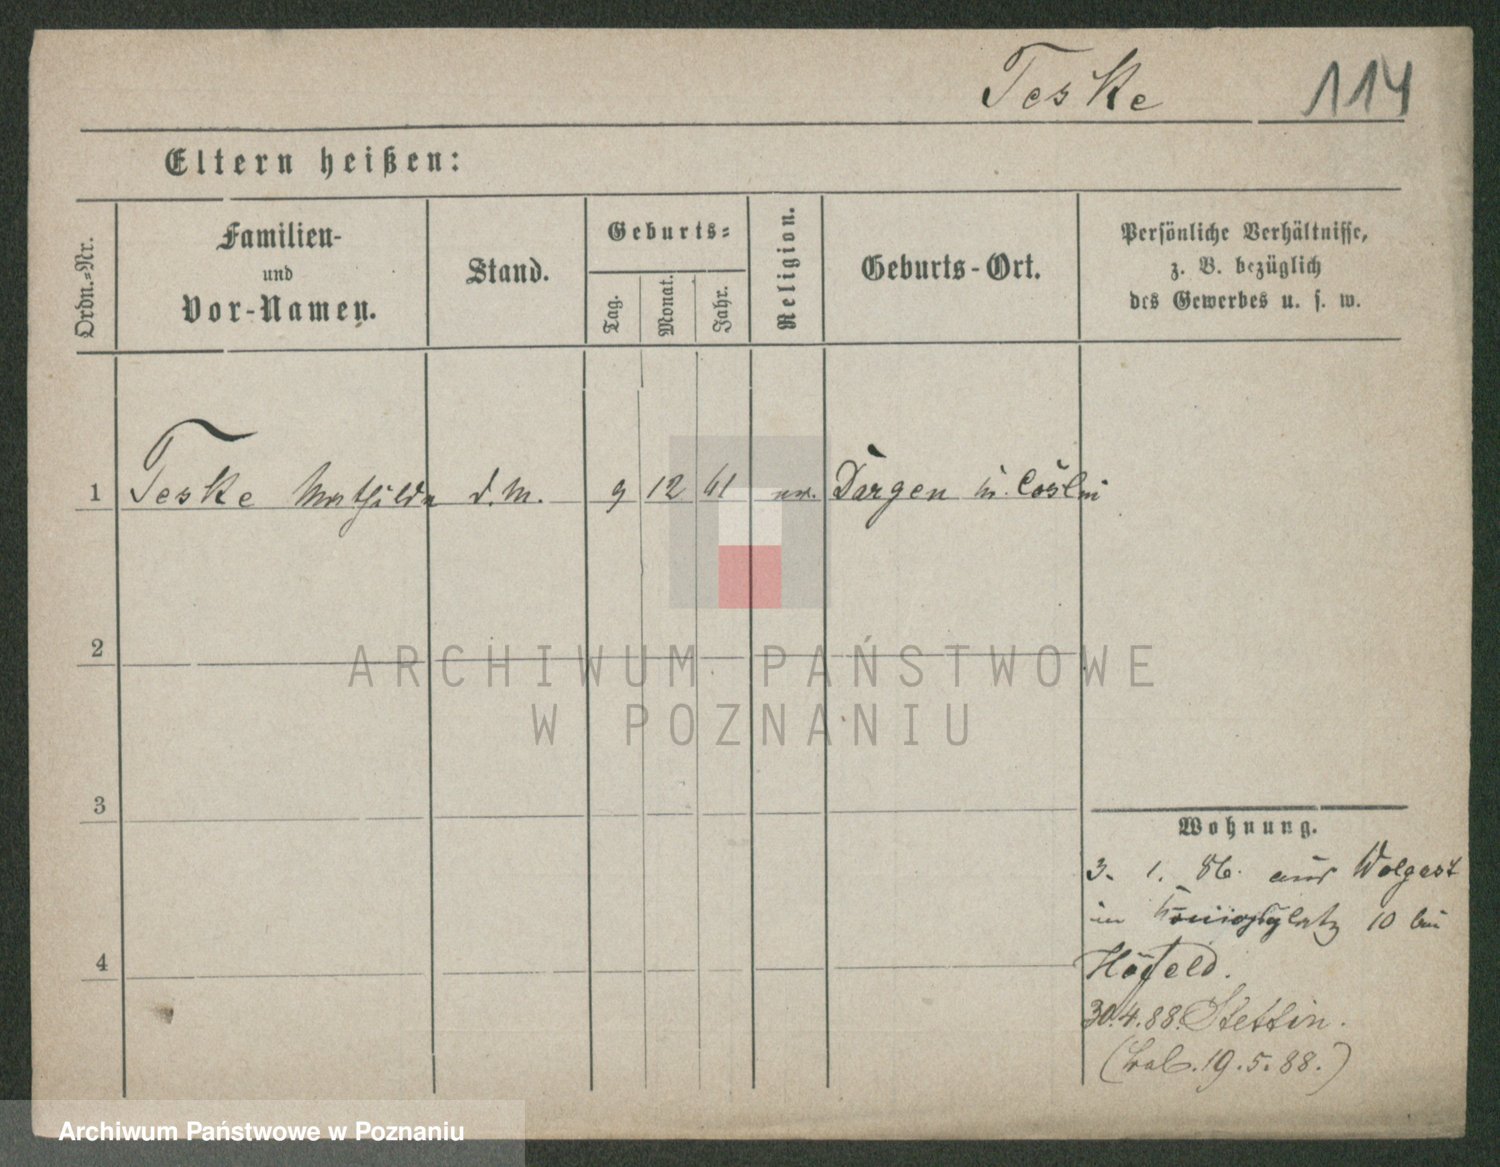 Teske 114
Eltern heißen:
Ordn.=Nr.
Familien-
und
Vor-Namen.
Stand.
Geburts=
Tag.
Monat.
Jahr.
Religion.
Geburts-Ort.
Persönliche Verhältnisse,
z. B. bezüglich
des Gewerbes u. s. w.
1 Teske Mathilde d. M. 9 12 61 ev. Dargen in Cöslin
2
3
4
Wohnung.
3. 1. 86. aus Wolgast
in Königsplatz 10 bei
Höfeld.
30.4.88. Stettin.
19.5.88.)
ARCHIWUM PAŃSTWOWE
W POZNANIU
Archiwum Państwowe w Poznaniu